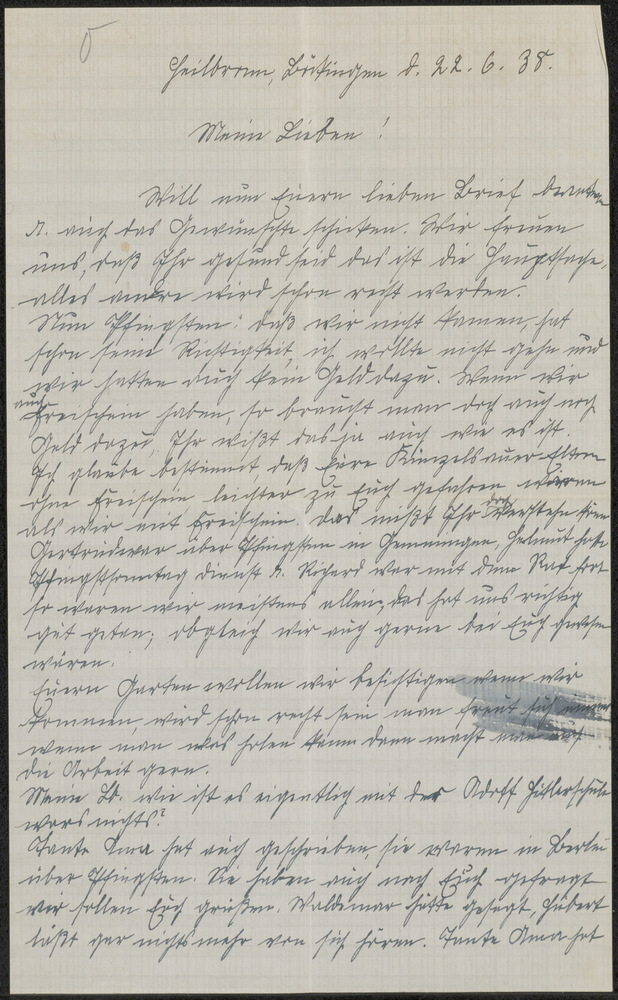 5
Heilbronn, Böckingen d. 22. 6. 38.
Meine Lieben!
Will nun Euern lieben Brief beantw.
u. auch das Gewünschte schicken. Wir freuen
uns, daß Ihr gesund seid das ist die Hauptsache,
alles andre wird schon recht werden.
Nun Pfingsten: daß wir nicht kamen, hat
schon seine Richtigkeit, ich wollte nicht gehn und
wir hatten auch kein Geld dazu. Wenn wir
auch
Freischein haben, so braucht man doch auch noch
Geld dazu, Ihr wißt das ja auch wie es ist.
Ich glaube bestimmt, daß Eure Künzelsauer-Eltern
ohne Freischein leichter zu Euch gefahren wären
als wir mit Freischein. Das müßt Ihr doch verstehn können
Gertrud war über Pfingsten in Gemmingen, Helmut hatte
Pfingstsonntag Dienst u. Richard war mit dem Rad fort
so waren wir meistens allein, das hat uns richtig
gut getan; obgleich wir auch gerne bei Euch gewesen
wären.
Euern Garten wollen wir besichtigen wenn wir
kommen, wird schon recht sein man freut sich immer
wenn man was holen kann dann macht man auch
die Arbeit gern.
Meine Lb. wie ist es eigentlich mit der Adolf Hitlerschule
wars nichts?
Tante Anna hat auch geschrieben, sie waren in Berlin
über Pfingsten. Sie haben auch nach Euch gefragt
wir sollen Euch grüßen. Waldemar hätte gesagt, Hubert
läßt gar nichts mehr von sich hören. Tante Anna hat